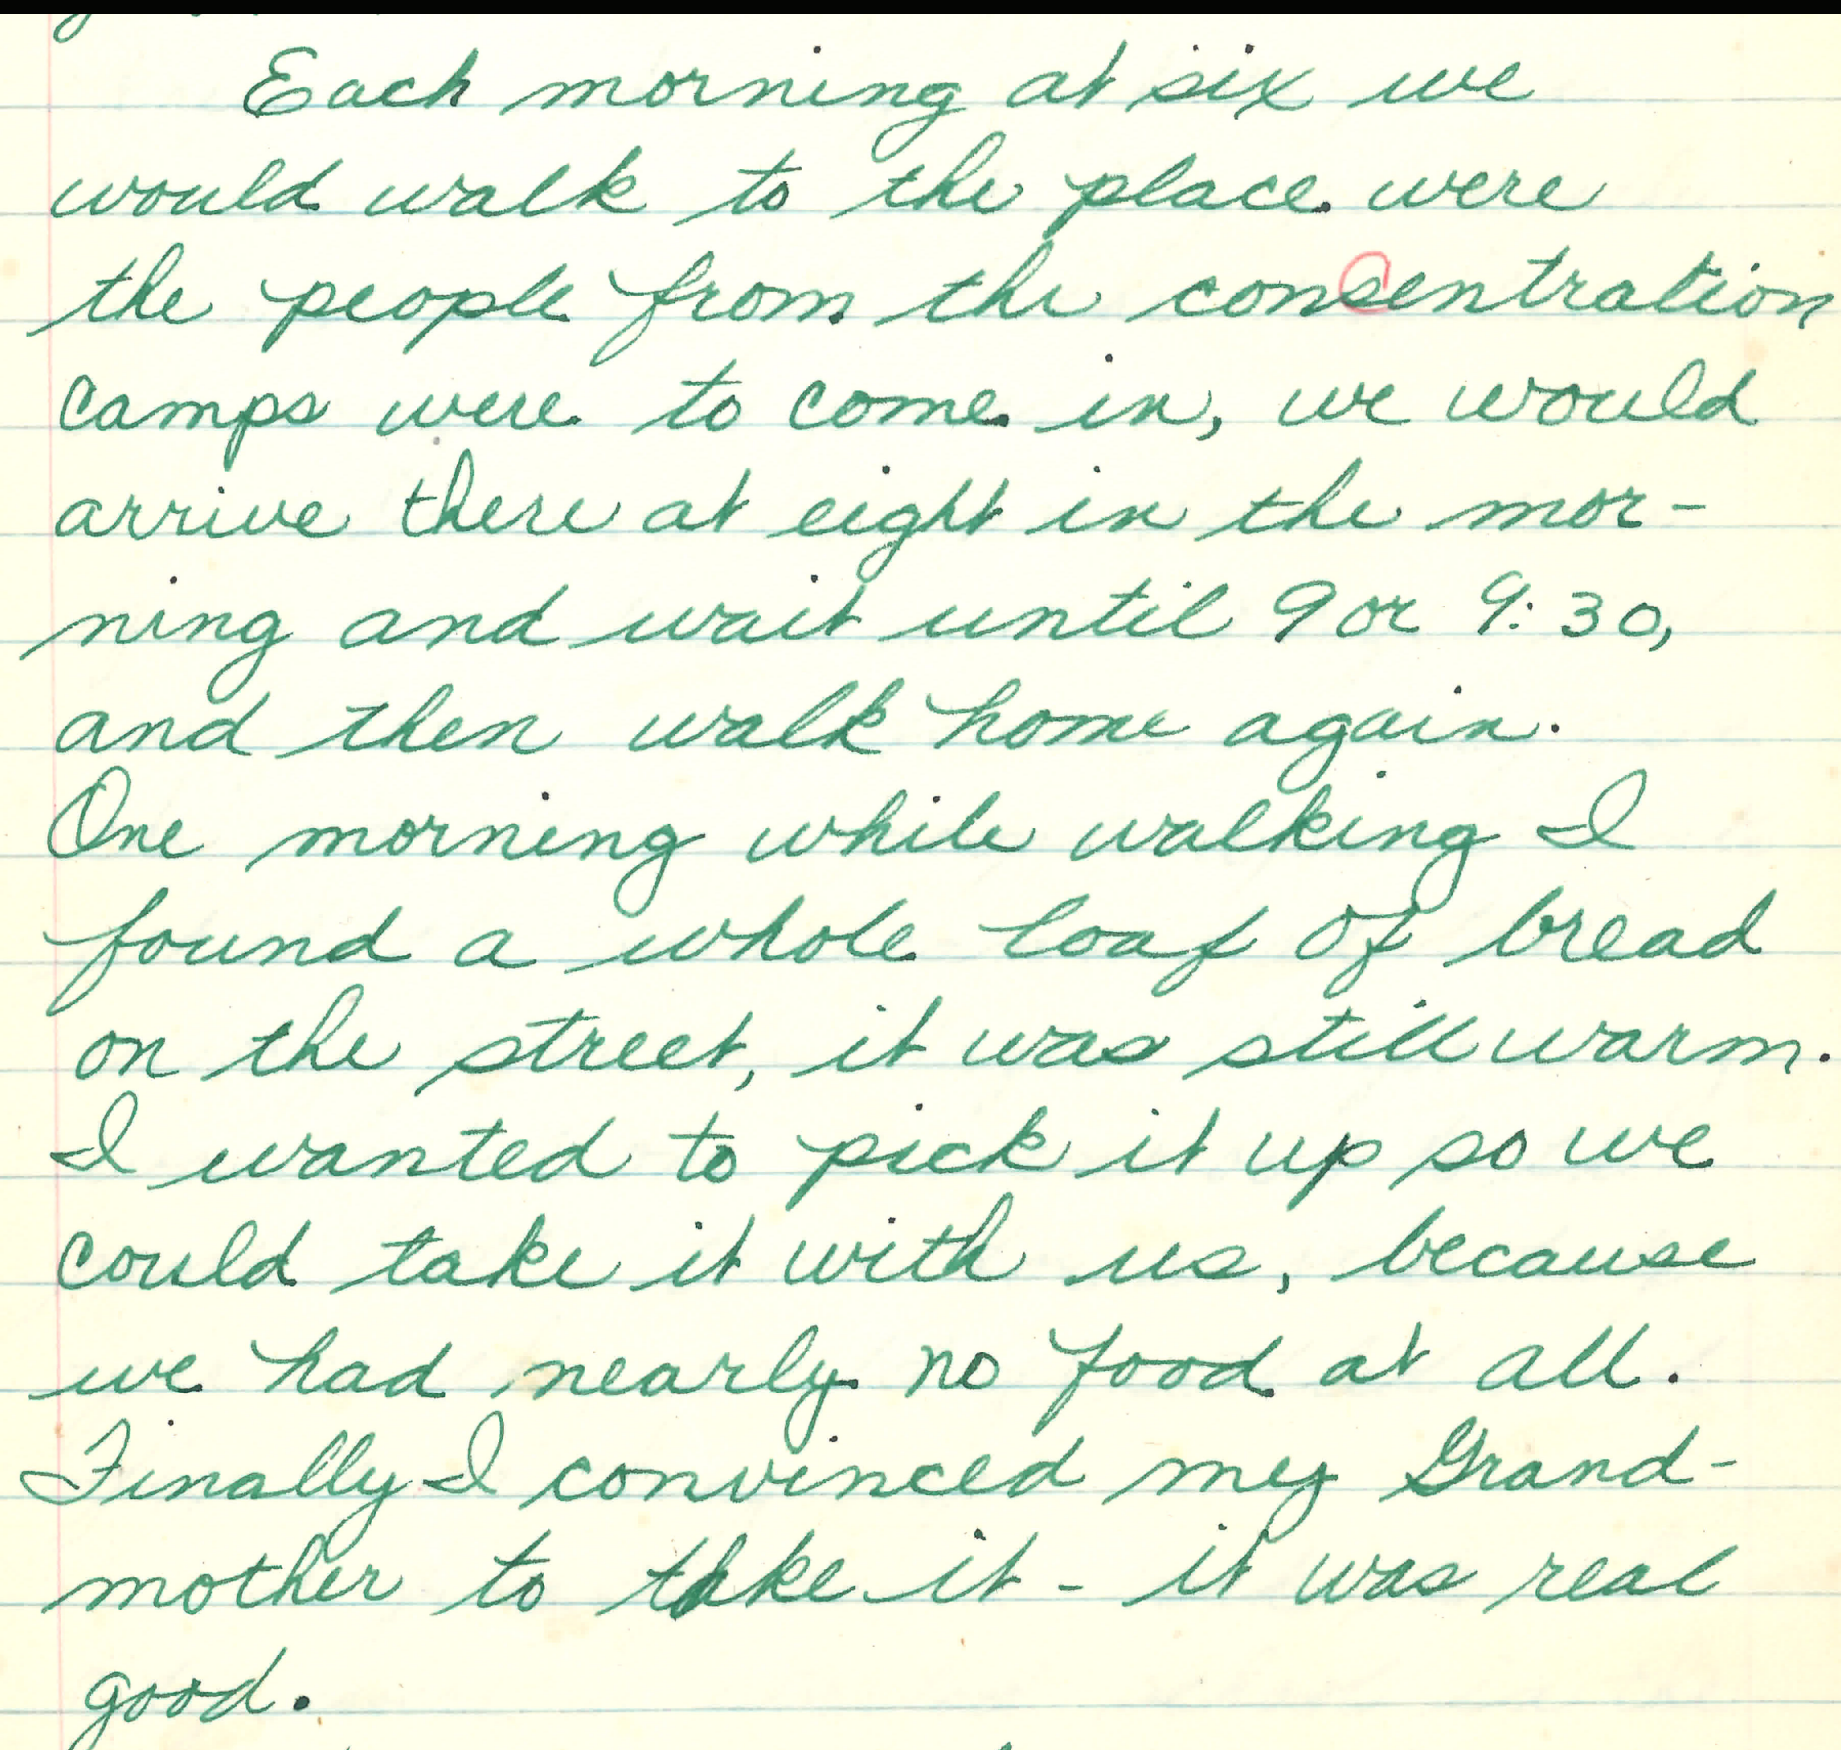 Each morning at six we
would walk to the place were
the people from the consentration
camps were to come in, we would
arrive there at eight in the mor-
ning and wait until 9 or 9:30,
and then walk home again.
One morning while walking I
found a whole loaf of bread
on the street, it was still warm.
I wanted to pick it up so we
could take it with us, because
we had nearly no food at all.
Finally I convinced my Grand-
mother to take it - it was real
good.